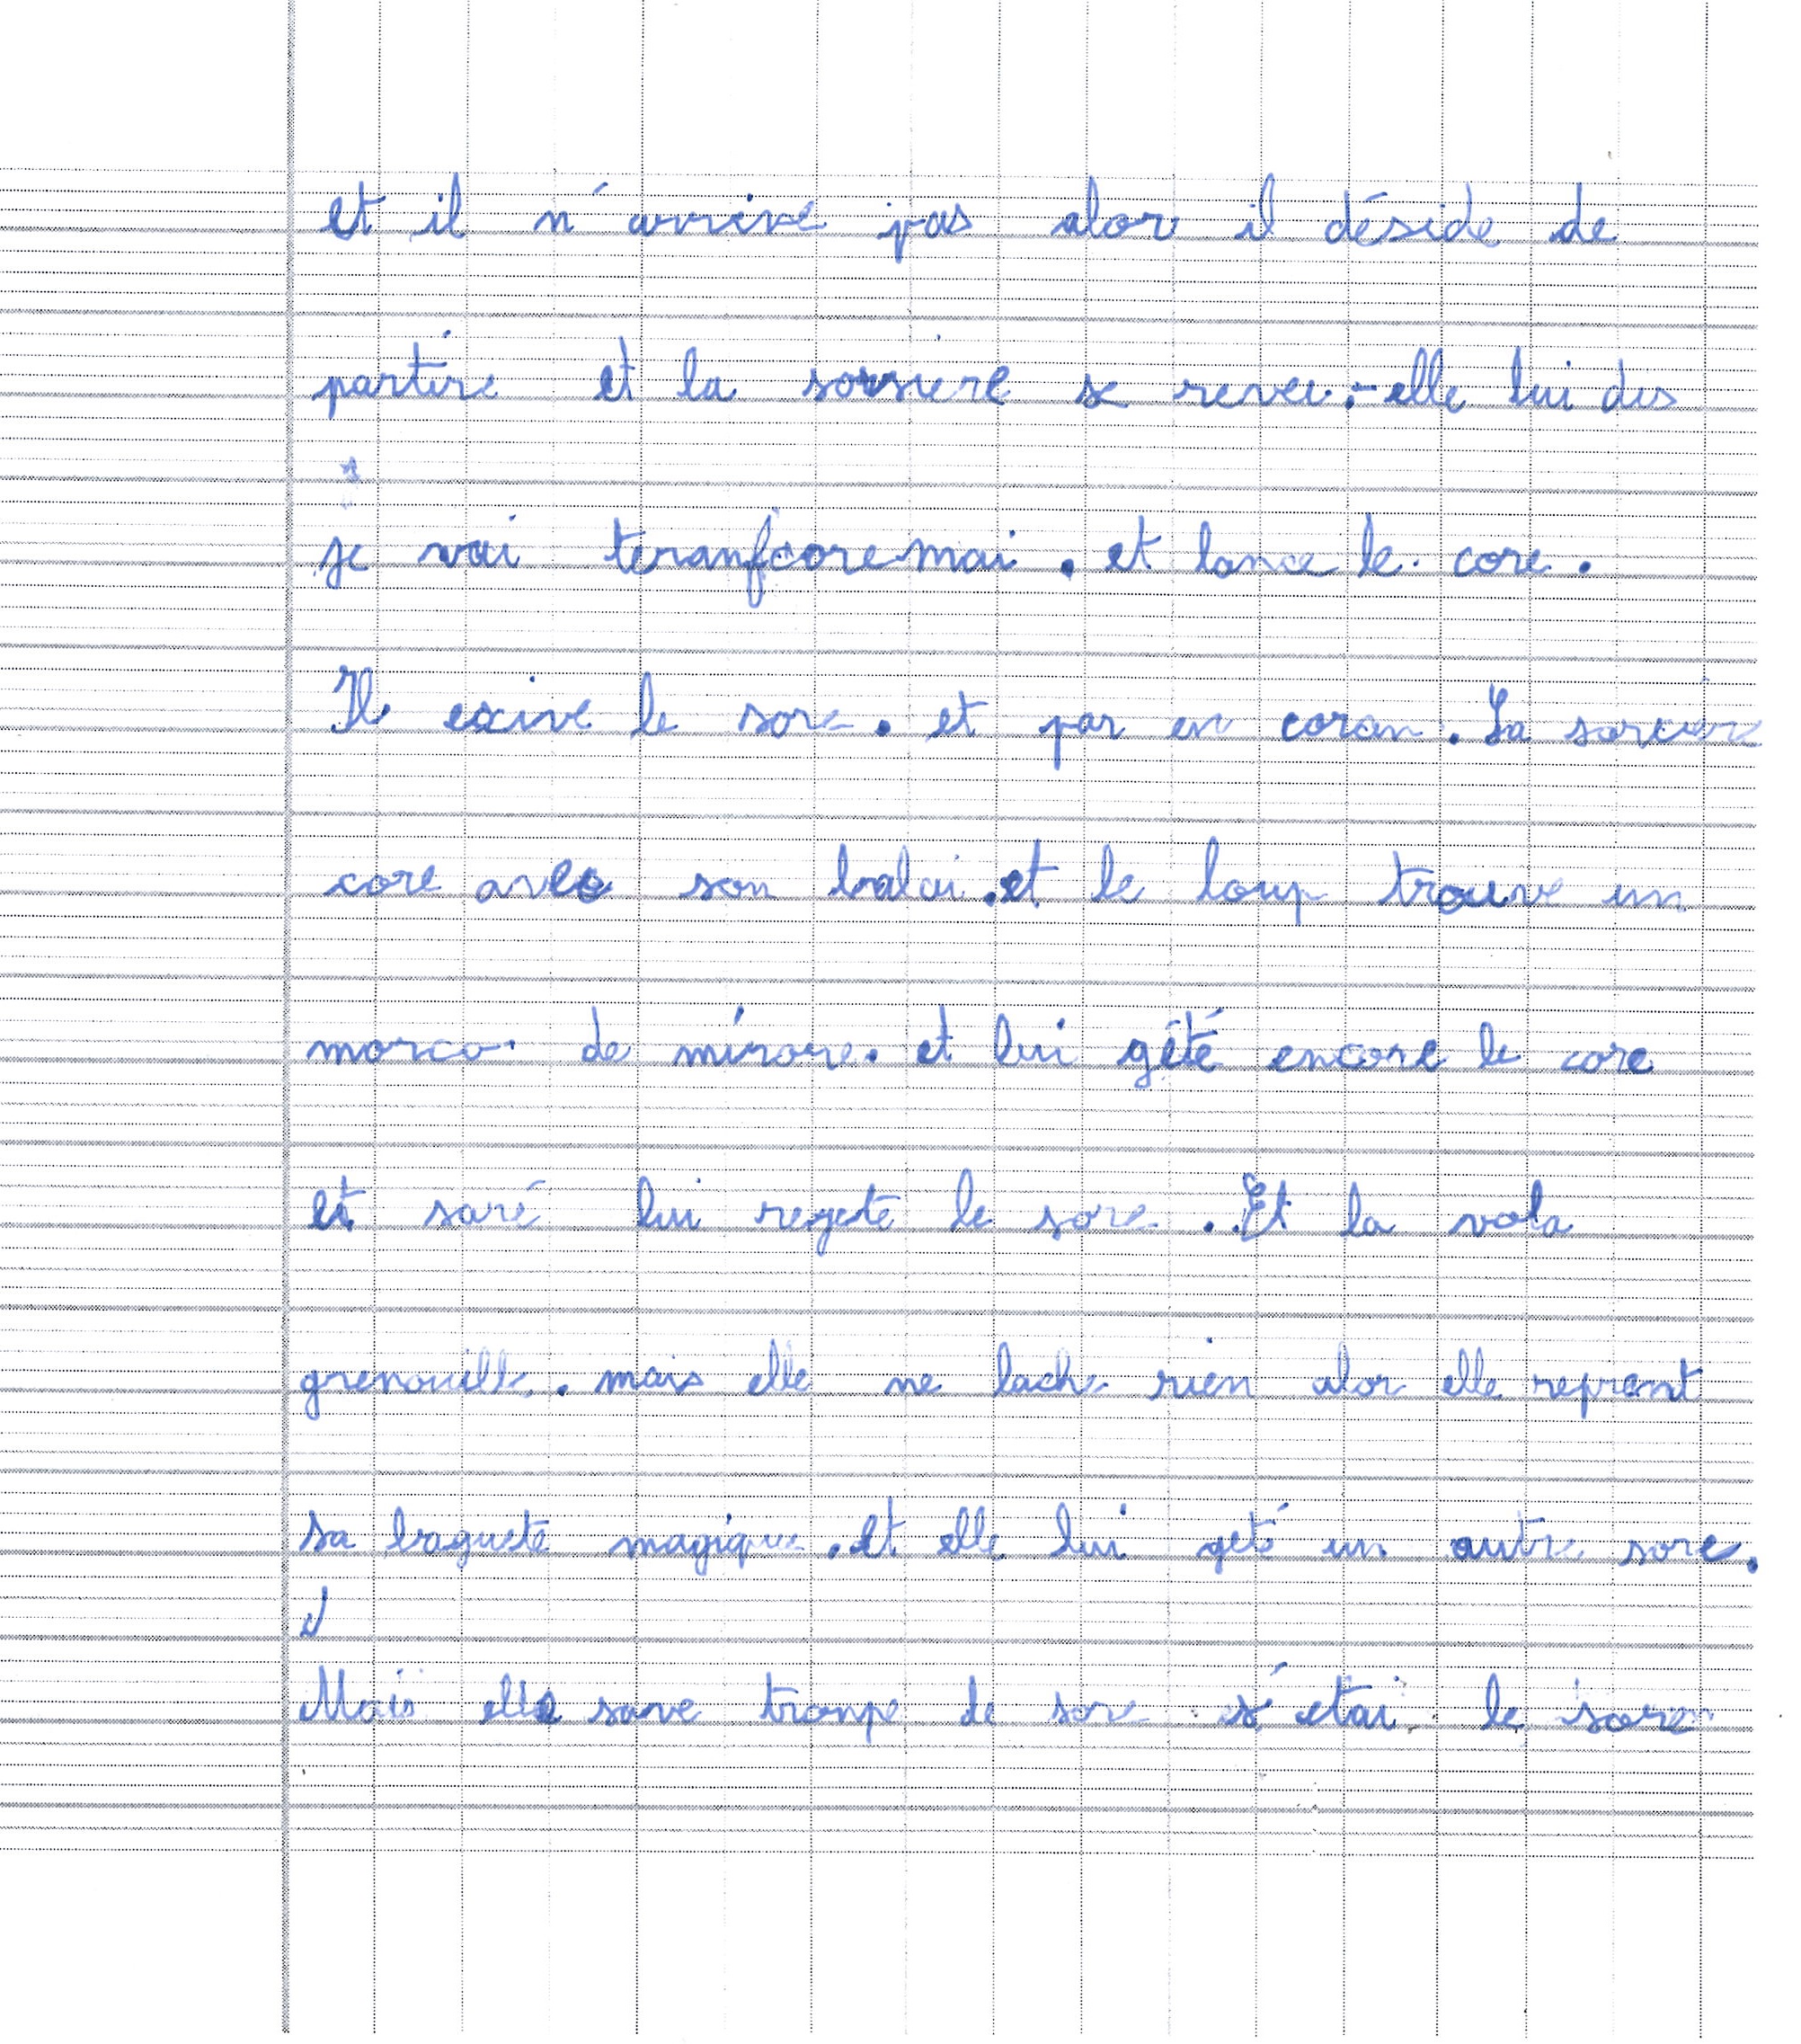 et il n'arrive pas alor il déside de
partire et la sorsiere se reveı :- elle lui dis
je vai teranfcoremai . et lance le core .
Il excive le sore . et par en coran . La sorciere
core avec son balai . et le loup trouve un
morco de mirore . et lui gêté encore le core
et saré lui regete le sore . Et la vola
grenouille . mais elle ne lache rien alor elle reprent
sa baguete magique . et elle lui geté un autre sore .
Mais elle save trompe de sore s'étai le sore